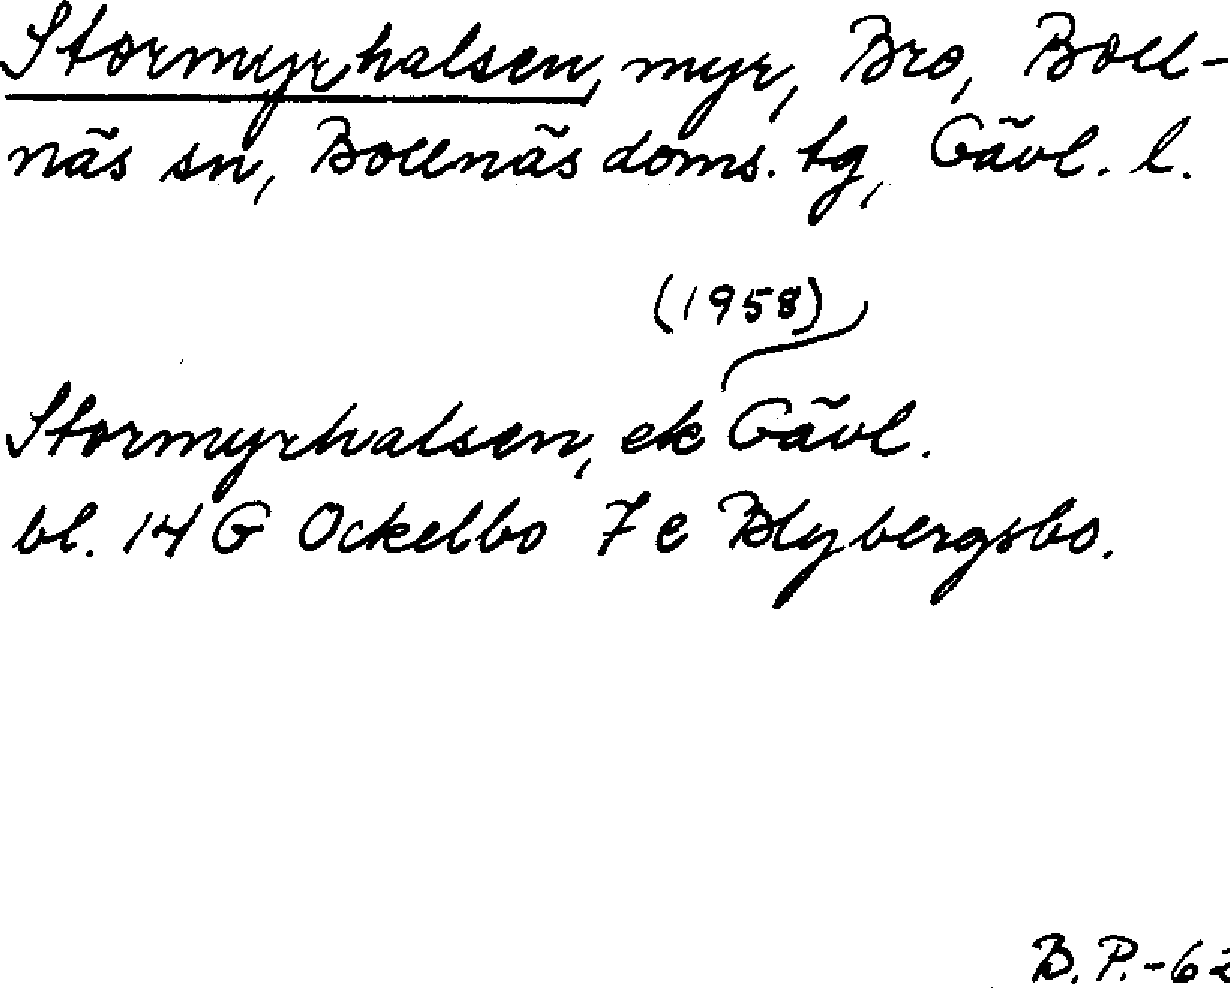 Stormyrhalsen, myr, Bro, Boll-
näs sn, Bollnäs doms. tg, Gävl. l.
(1958)
Stormyrhalsen, ek Gävl.
bl. 14 G Ockelbo 7 e Blybergsbo.
B. P. - 62